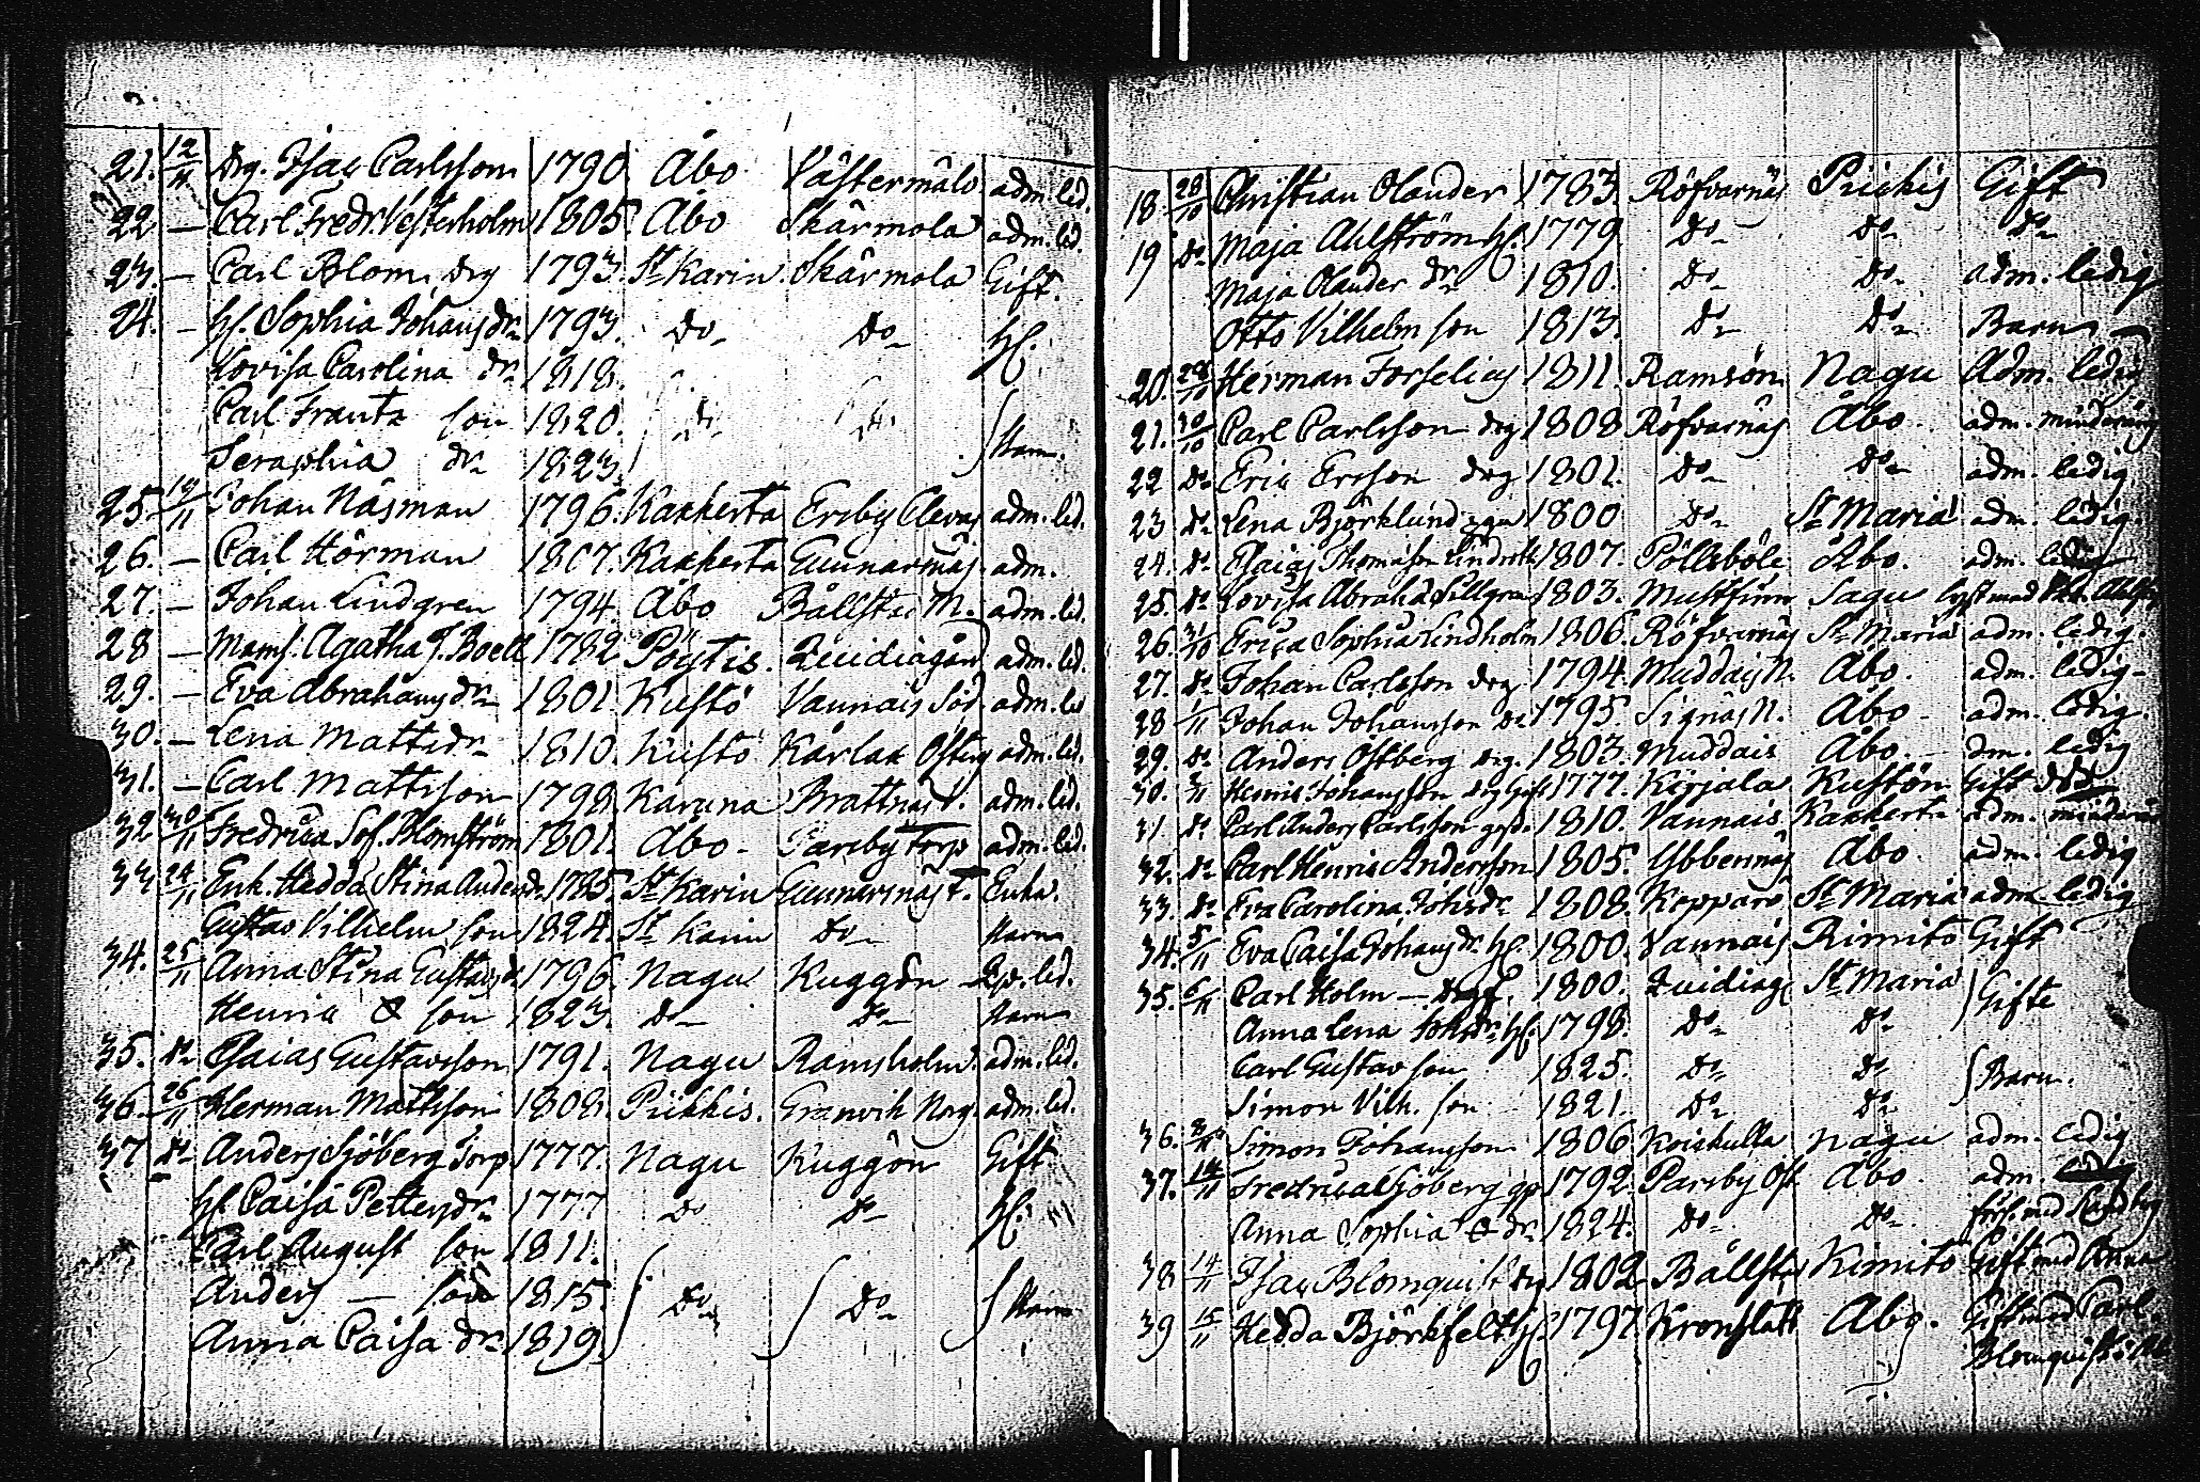 21. 12/11 Drg. Isac Carlsson 1790. Åbo Västermälö adm. led.
22. — Carl Fredr. Vesterholm 1805. Åbo Skärmola adm. led.
23. — Carl Blom drg 1793. St Karin. Skärmola Gift.
24. — H. Sophia Johansdr 1793. Do Do H.
Lovisa Carolina dr 1818.
Carl Frantz son 1820. Do Do Barn.
Seraphia dr 1823.
25. 14/11 Johan Näsman 1796. Kakkerta Ersby Clevas adm. led.
26. — Carl Hörman 1807. Kakkerta Gunnarsnäs. adm.
27. — Johan Lindgren 1794. Åbo Bällsta M. adm. led.
28 — Mams. Agatha J. Boell 1782 Pöytis. Qvidiagård adm. led.
29. — Eva Abrahamsdr 1801. Kustö Vannais Söd. adm. led
30. — Lena Mattsdr 1810. Kustö Kärlax Östeg adm. led.
31. — Carl Mattsson 1798. Karuna Brattnäs adm. led.
32 20/11 Fredrica Sof. Blomström 1801. Åbo - Parsby Torp adm. led.
33 24/11 Enk. Hedda Stina Andersdr. 1785. St Karin Gunnarsnäs T. Enka.
Gustav Vilhelm son 1824. St Karin Do Barn
34. 25/11 Anna Stina Gustavsdr 1796 Nagu Kuggön led.
Henric son 1823. Do Do Barn
35. Do Esaias Gustavsson 1791. Nagu Ramsholm. adm. led.
36. 26/11 Herman Mattsson 1808. Pikkis. Granvik Norg. adm. led.
37 Do Anders Sjöberg Torp. 1777. Nagu Kuggön Gift
H. Caisa Pettersdr 1777 Do Do H.
Carl August son 1811.
Anders — son 1815. Do Do Barn
Anna Caisa dr 1819.
18. 28/10 Christian Olander 1783. Röfvarnäs Piickis Gift
19 Do Maja Ahlström H. 1779 Do Do Do
Maja Olander dr 1810. Do Do adm. ledig
Otto Vilhelm son 1813. Do Do Barn
20. 28/10 Herman Forselius 1811. Ramsön Nagu Adm. ledig
21. 30/10 Carl Carlsson drg 1808 Röfvarnäs Åbo. adm. minderårig
22 Do Eric Ersson drg 1801. Do Do adm. ledig
23 Do Lena Björklund pga 1800 Do St Maria adm. ledig.
24. Do Esaias Thomasson Lindroth 1807. Pölsböle Åbo. adm. ledig
25. Do Lovisa Abrahd Sillgren 1803. Mustfinn Sagu lyst med
26. 31/10 Erica Sophia Lindholm 1806. Röfvarnäs St Maria adm. ledig.
27. Do Johan Carlsson drg 1794. Muddais N. Åbo. adm. ledig -
28 1/11 Johan Johansson Dr 1795. Signäs N. Åbo - adm. ledig.
29. Do Anders Östberg drg. 1803. Muddais Åbo. - adm. ledig
30. 3/11 Henric Johansson drg Gift 1777. Kirjala Kustön Gift
31. Do Carl Anders Carlsson goss. 1810. Vannais Kakkerta adm. minderårig
32. Do Carl Henric Andersson 1805. Ybbernäs Åbo adm. ledig
33. Do Eva Carolina Johsdr 1808. Kopparö St Maria adm. ledig
34. 5/11 Eva Caisa Johansdr H. 1800. Vannais Rimito Gift
35. 6/11 Carl Holm — Drg. 1800. Qvidiag St Maria Gifte
Anna Lena Johsdr H. 1798. Do Do
Carl Gustav son 1825. Do Do Barn.
Simon Vilh. son 1821. Do Do
36. 8/11 Simon Johansson 1806 Koiskulla Nagu adm. ledig
37. 14/11 Fredrica Sjöberg pga 1792. Parsby Öst. Åbo adm.
Anna Sophia dr 1824. Do Do
38 14/11 Isac Blomquist drg 1802 Bällsta Kimito Gift med Anna
39 15/11 Hedda Björkfelt H. 1797. Kronslätt Åbo. Gift med Carl
Blomquist i Åbo